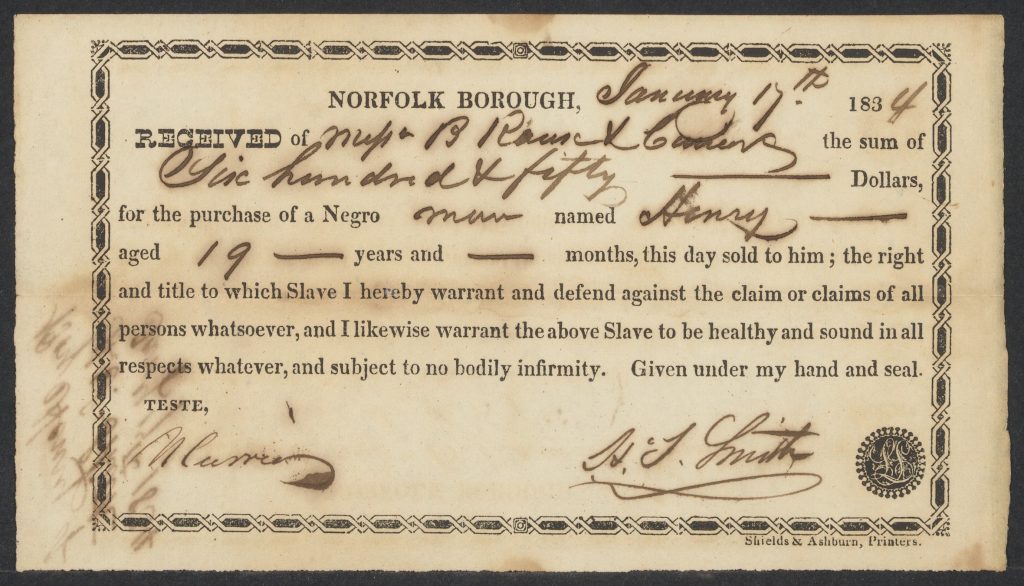 NORFOLK BOROUGH, January 17th 1834
RECEIVED of Messrs B Raux & the sum of
Six hundred & fifty Dollars,
for the purchase of a Negro man named Henry
aged 19 years and months, this day sold to him; the right
and title to which Slave I hereby warrant and defend against the claim or claims of all
persons whatsoever, and I likewise warrant the above Slave to be healthy and sound in all
respects whatever, and subject to no bodily infirmity. Given under my hand and seal.
TESTE,
H. S. Smith
LS
Shields & Ashburn, Printers.